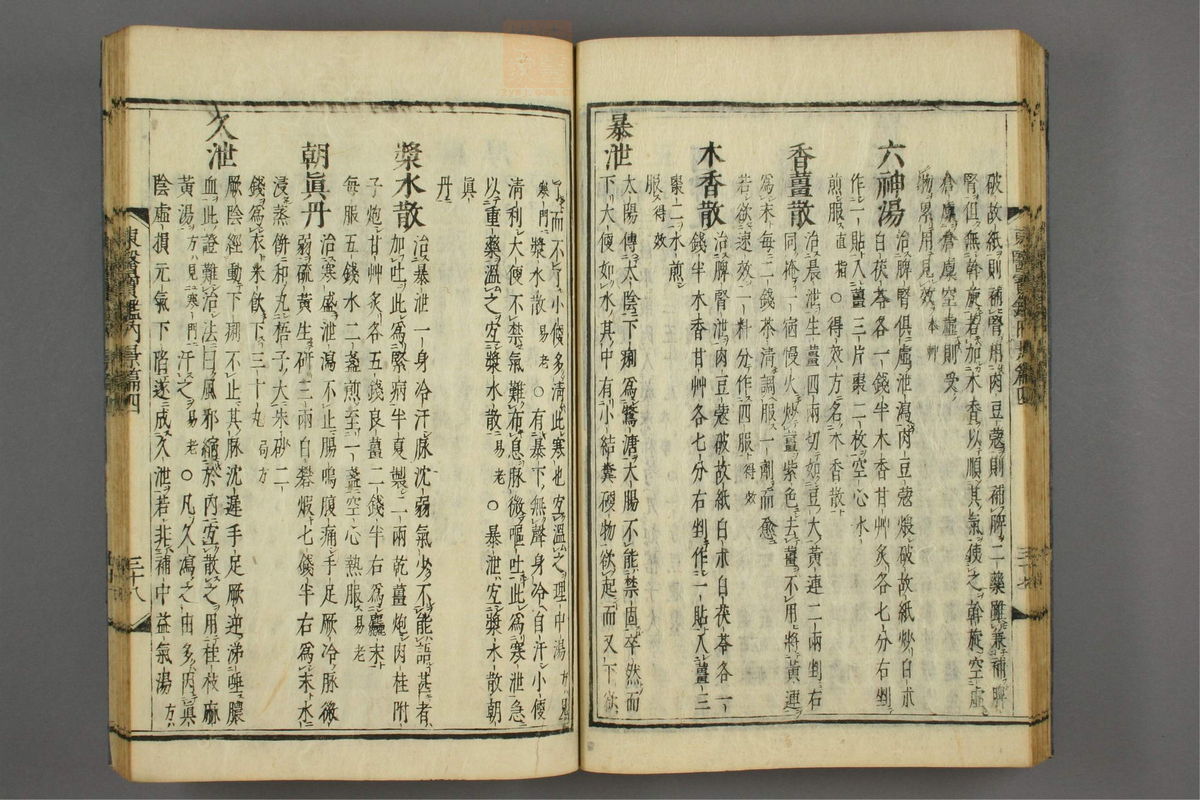 破故紙則補腎用肉豆蔲則補脾二藥雖兼補脾
腎但無斡旋若加木香以順其氣使之斡旋空虛
倉廩倉廩空虛則受
物累用見效本事
六神湯
治脾腎俱虛泄瀉肉豆蔲煨破故紙炒白朮
白茯苓各一錢半木香甘艸炙各七分右剉
作一貼入薑三片棗二枚空心水
煎服直指○得效方名木香散
香薑散
治晨泄生薑四兩切如豆大黃連二兩剉右
同淹一宿慢火炒薑紫色去薑不用將黃連
爲末每二錢茶清調服一劑而愈
若欲速效一料分作四服得效
木香散
治脾腎泄肉豆蔲破故紙白朮白茯苓各一
錢半木香甘艸各七分右剉作一貼入薑三
棗二水煎
服得效
暴泄
太陽傳太陰下痢爲鶩溏大腸不能禁固卒然而
下大便如水其中有小結糞硬物欲起而又下欲
了而不了小便多淸此寒也宜溫之理中湯方見
寒門漿水散易老○有暴下無聲身冷自汗小便
清利大便不禁氣難布息脉微嘔吐此爲寒泄急
以重藥溫之宜漿水散易老○暴泄宜漿水散朝
眞
丹
漿水散
治暴泄一身冷汗脉沈弱氣少不能語甚者
加吐此爲緊病半夏製二兩乾薑炮肉桂附
子炮甘艸炙各五錢良薑二錢半右爲麤末
每服五錢水二盞煎至一盞空心熱服易老
朝眞丹
治寒盛泄瀉不止腸鳴腹痛手足厥冷脉微
弱硫黃生硏三兩白礬煆七錢半右爲末水
浸蒸餠和丸梧子大朱砂二
錢爲衣米飮下三十丸局方
久泄
厥陰經動下痢不止其脉沈遲手足厥逆涕唾膿
血此證難治法曰風邪縮於內宜散之用桂枝麻
黃湯方見寒門汗之易老○凡久瀉之由多因眞
陰虛損元氣下陷遂成久泄若非補中益氣湯方
東醫寶鑑內景篇四
三十八